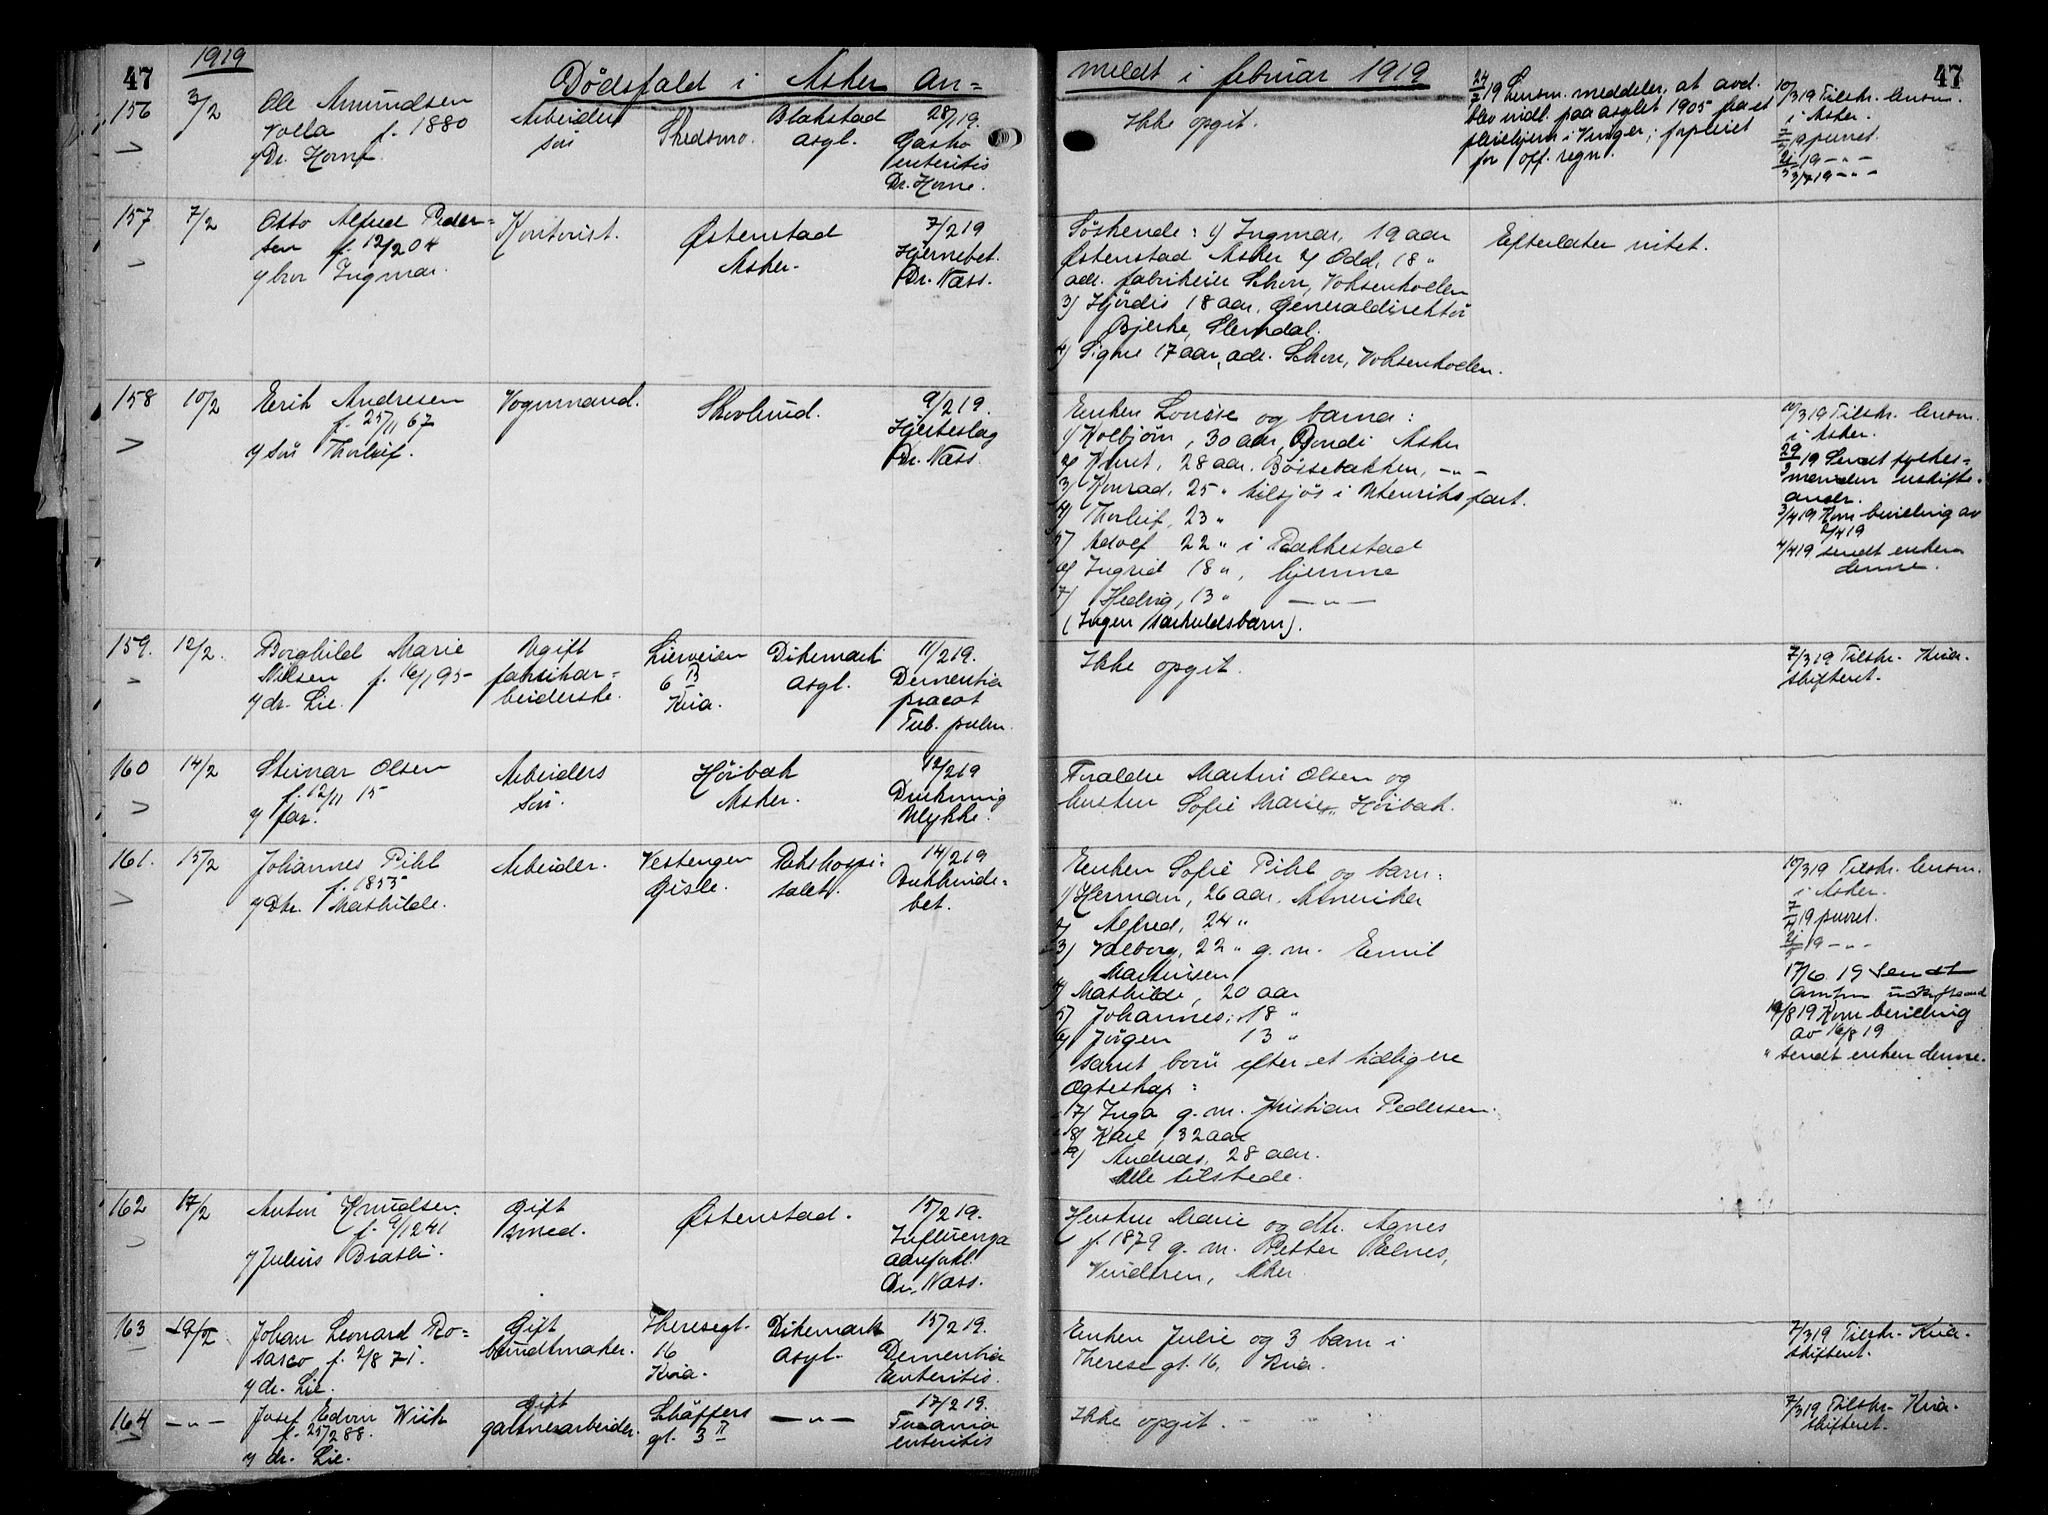 47
1919
Dødsfald i Asker an=
meldt i februar 1919
47
156 3/2 Ole Amundsen
Volla f. 1880
v/ Dr. Horne
Arbeider
søn
Skedsmo.
Blakstad
asyl.
28/1 19.
Gastro
enteritis
Dr. Horne.
Ikke opgit.
24/2 19 Lensm. meddeler, at avd.
blev indl. paa asylet 1905 fra et
pleiehjem i Vinger; forpleiet
for off. regn.
10/3 19 Tilskr. lensm.
i Asker.
19 purret.
19 -"-
3/7 19 -"-
157 7/2 Otto Alfred Peder=
sen f. 12/2 04
v/ bror Ingmar.
Kontorist.
Østenstad
Asker.
7/2 19
Hjernebet.
Dr. Næss.
Søskende: 1/ Ingmar, 19 aar
Østenstad Asker 2/ Odd, 18 "
adr. fabrikeier Schou, Voksenkollen
3) Hjørdis 18 aar, Generaldirektør
Bjerke, Slemdal.
4) Signe 17 aar, adr. Schou, Voksenkollen.
Efterlater intet.
158 10/2 Erik Andresen
f. 25/11 67
v/ søn Thorleif.
Vognmand.
Skovlund.
9/2 19.
Hjerteslag
Dr. Næss.
Enken Lovise og barna:
1) Kolbjørn, 30 aar, Asker
2/ Knut, 28 aar. -"-
3) Konrad, 25 " tilsjøs i utenriksfart.
4) Thorleif, 23 "
5) Adolf 22 " i Bakkestad
6) Ingrid 18 ", hjemme
7) Hedvig, 13 " -"-
(Ingen særkuldsbarn).
10/3 19 Tilskr. lensm.
i Asker.
29/3 19 Sendt fylkes=
manden uskifte-
andr.
3/4 19 Kom bevilling av
2/4 19
4/4 19 sendt enken
denne.
159. 12/2. Borghild Marie
Nilsen f. 16/1 95
v/ dr. Lie.
Ugift
fabrikar=
beiderske.
Lierveien
6 B
Kria.
Dikemark
asyl.
11/2 19.
Dementia
præcot
Tub. pulm.
Ikke opgit.
7/3 19 Tilskr. Kria.
skifteret.
160 14/2 Steinar Olsen
f. 12/11 15
v/ far.
Arbeiders
søn.
Høibak
Asker.
12/2 19
Drukning
Ulykke.
Forældre Martin Olsen og
hustru Sofie Marie, Høibak.
161. 15/2 Johannes Pihl
f. 1855
v/ Dtr. Mathilde.
Arbeider.
Vestengen
Gisle.
Rikshospi=
talet.
14/2 19
Bukhinde=
bet.
Enken Sofie Pihl og barn:
1) Herman, 26 aar, Amerika
2) Alfred, 24 "
3) Valborg, 22 " g. m. Emil
Martinsen
4) Mathilde, 20 aar
5) Johannes, 18 "
6) Jørgen 13 "
samt barn efter et tidligere
ægteskap:
7) Inga g. m. Kristian Pedersen.
8) Karl, 32 aar
9) Andreas, 28 aar.
Alle tilstede.
10/3 19 Tilskr. lensm.
i Asker.
19 purret.
19 -"-
17/6. 19 Sendt
Amtm. uskifteand
19/8 19 Kom bevilling
av 16/8 19
" sendt enken denne.
162 17/2 Anton Knudsen.
f. 9/12 41
v/ Julius Bratli.
Gift
smed.
Østenstad.
15/2 19.
Influenza
aarefork.
Dr. Næss.
Hustru Marie og dtr. Agnes
f. 1879 g. m. Petter Elnes,
Vindern, Aker.
163 19/2 Johan Leonard Ro=
sasco f. 2/8 71.
v/ dr. Lie.
Gift
buntmaker.
Theresegt.
16
Kria.
Dikemark
Asyl.
15/2 19.
Dementia
Enteritis.
Enken Julie og 3 barn i
Therese gt. 16, Kria.
7/3 19 Tilskr. Kria.
skifteret.
164 -"- Josef Edvin Wiik
f. 25/2 88.
v/ dr. Lie.
Gift
gartnerarbeider.
Schäffers
gt. 3 II
-"-
17/2 19.
enteritis
Ikke opgit.
7/3 19 Tilskr. Kria.
skifteret.